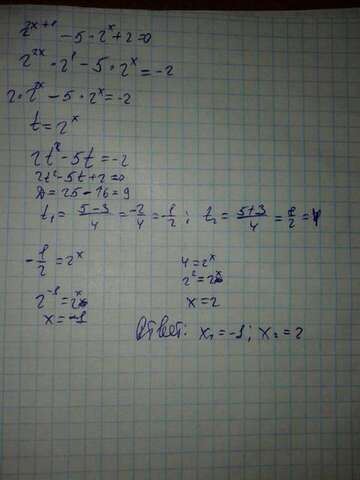 2^{x+1} - 5 · 2^x + 2 = 0
2^{2x} · 2^1 - 5 · 2^x = -2
2 · 2^{2x} - 5 · 2^x = -2
t = 2^x
2t^2 - 5t = -2
2t^2 - 5t + 2 = 0
D = 25 - 16 = 9
t_1 = \frac{5-3}{4} = \frac{-2}{4} = \frac{1}{2} ; t_2 = \frac{5+3}{4} = \frac{8}{2} = 4
-\frac{1}{2} = 2^x 4 = 2^x
2^{-1} = 2^x 2^2 = 2^x
x = -1 x = 2
Ответ: x_1 = -1 ; x_2 = 2